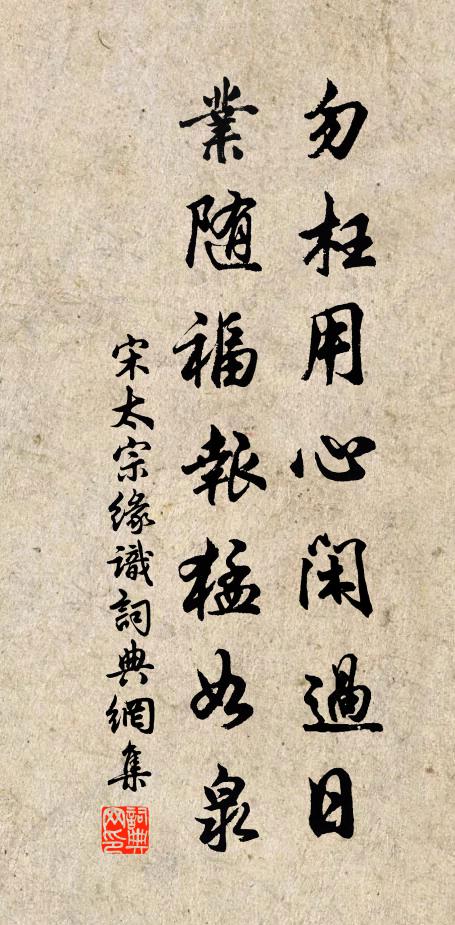 勿枉用心闲過日
業随福報猛如泉
宋太宗緣識詞典網集
詞典網印